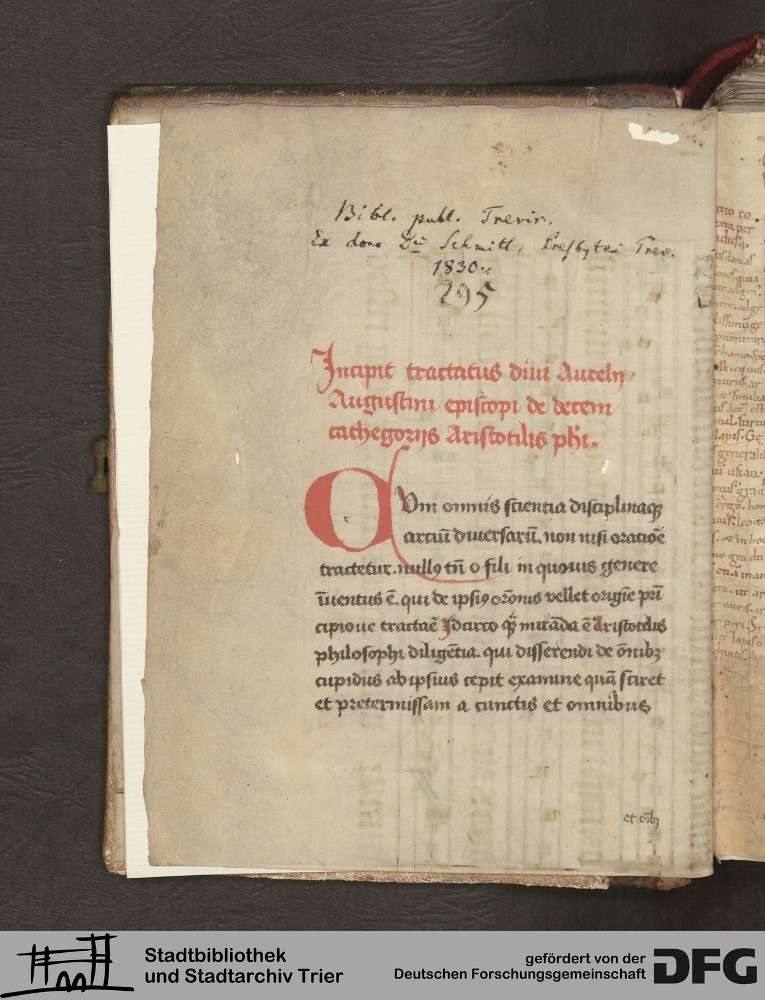 Bibl. publ. Trevir.
Ex dono Dni Schmitt, Presbyteri Trev.
1830.
295
Incipit tractatus diui Aurelij
Augustini episcopi de decem
cathegorijs Aristotilis phi.
CVm omnis scientia disciplinaqꝫ
artiū diuersarū. non nisi oratioē
tractetur. nullꝯ tn̄ o fili in quouis genere
īuentus ē. qui de ipsiꝯ orōnis vellet origīe pri
cipioue tractaē Idcirco qꝫ mirāda ē Aristotilis
philosophi diligētia. qui disserendi de ōnibꝫ
cupidus ab ipsius cepit examine quā sciret
et pretermissam a cunctis et omnibus
et oībꝫ
Stadtbibliothek
und Stadtarchiv Trier
gefördert von der
Deutschen Forschungsgemeinschaft
DFG